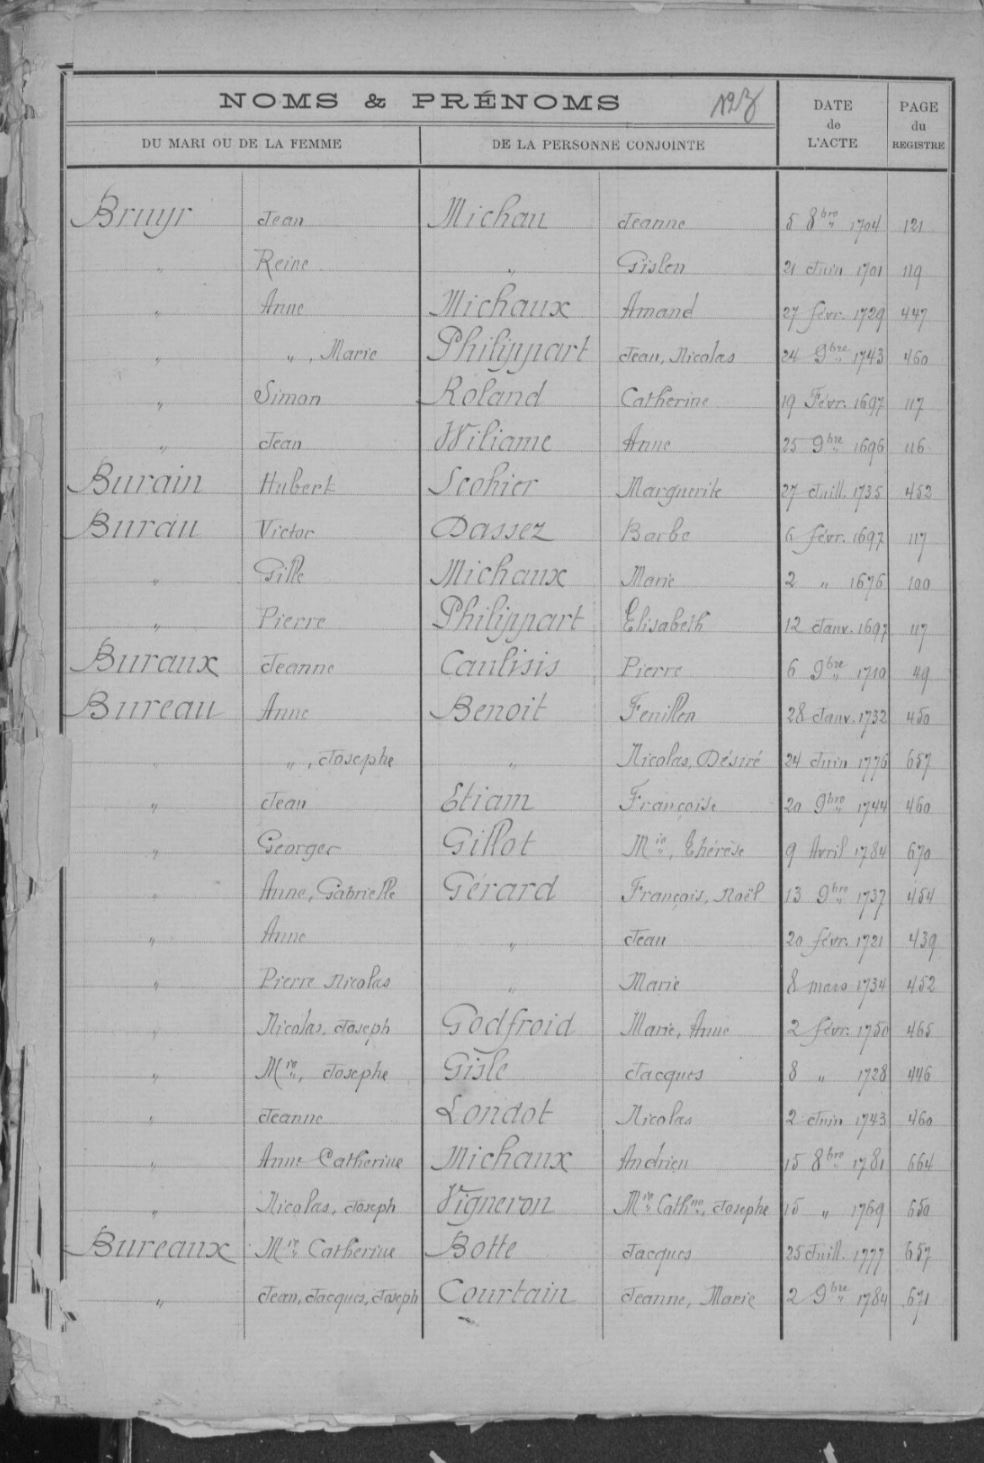 NOMS & PRÉNOMS 123 DATE de L'ACTE PAGE du REGISTRE
DU MARI OU DE LA FEMME DE LA PERSONNE CONJOINTE
Bruyr Jean Michau Jeanne 5 8bre 1704 121
" Reine " Gislen 21 Juin 1701 119
" Anne Michaux Amand 27 févr. 1729 447
" ", Marie Philippart Jean, Nicolas 24 9bre 1743 460
" Simon Roland Catherine 19 Févr. 1697 117
" Jean Wiliame Anne 25 9bre 1696 116
Burain Hubert Scohier Marguerite 27 Juill. 1735 452
Burau Victor Dassez Barbe 6 févr. 1697 117
" Gille Michaux Marie 2 " 1676 100
" Pierre Philippart Elisabeth 12 Janv. 1697 117
Buraux Jeanne Caulisis Pierre 6 9bre 1710 49
Bureau Anne Benoit Fenillen 28 Janv. 1732 450
" ", Josephe " Nicolas, Désiré 24 Juin 1776 657
" Jean Etiam Françoise 20 9bre 1744 460
" Georges Gillot Mie, Thérèse 9 Avril 1784 670
" Anne, Gabrielle Gérard François, Noël 13 9bre 1737 454
" Anne " Jean 20 févr. 1721 439
" Pierre Nicolas " Marie 8 mars 1734 452
" Nicolas, Joseph Godfroid Marie, Anne 2 févr. 1750 465
" Mie, Josephe Gisle Jacques 8 " 1728 446
" Jeanne Londot Nicolas 2 Juin 1743 460
" Anne Catherine Michaux Andrien 15 8bre 1781 664
" Nicolas, Joseph Vigneron Mie Cathne, Josephe 15 " 1769 650
Bureaux Mie Catherine Botte Jacques 25 Juill. 1777 657
" Jean, Jacques, Joseph Courtain Jeanne, Marie 2 9bre 1784 671